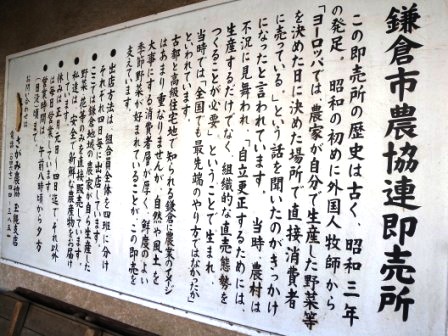 鎌倉市農協連即売所
この即売所の歴史は古く、昭和三年
の発足。昭和の初めに外国人牧師から
「ヨーロッパでは、農家が自分で生産した野菜等
を決めた日に決めた場所で直接消費者
に売っている」という話を聞いたのがきっかけ
になったと言われています。当時、農村は
不況に見舞われ、「自立更正するためには、
生産するだけでなく、組織的な直売態勢を
つくることが必要」ということで生まれ、
当時では、全国でも最先端のやり方ではなかったか
といわれています。
古都と高級住宅地で知られる鎌倉に農業のイメージ
はあまり重なりませんが、自然や風土を
大事にする消費者層が厚く、鮮度のよい
季節野菜が好まれていることが、この即売を
支えています。
・出店方法は、組合員全体を四班に分け
それぞれ四日毎に出店しています。
・ここでは鎌倉地域の農家が自ら生産した
野菜、花等のみを直接販売しています。
・私達は、安全で新鮮な農産物をお届け
しています。
・休みは正月元日〜四日迄で、それ以外
は毎日営業しています。
・営業時間は、午前八時頃から夕方
(日没)頃まで
お問い合わせは
さがみ農協 玉縄支店